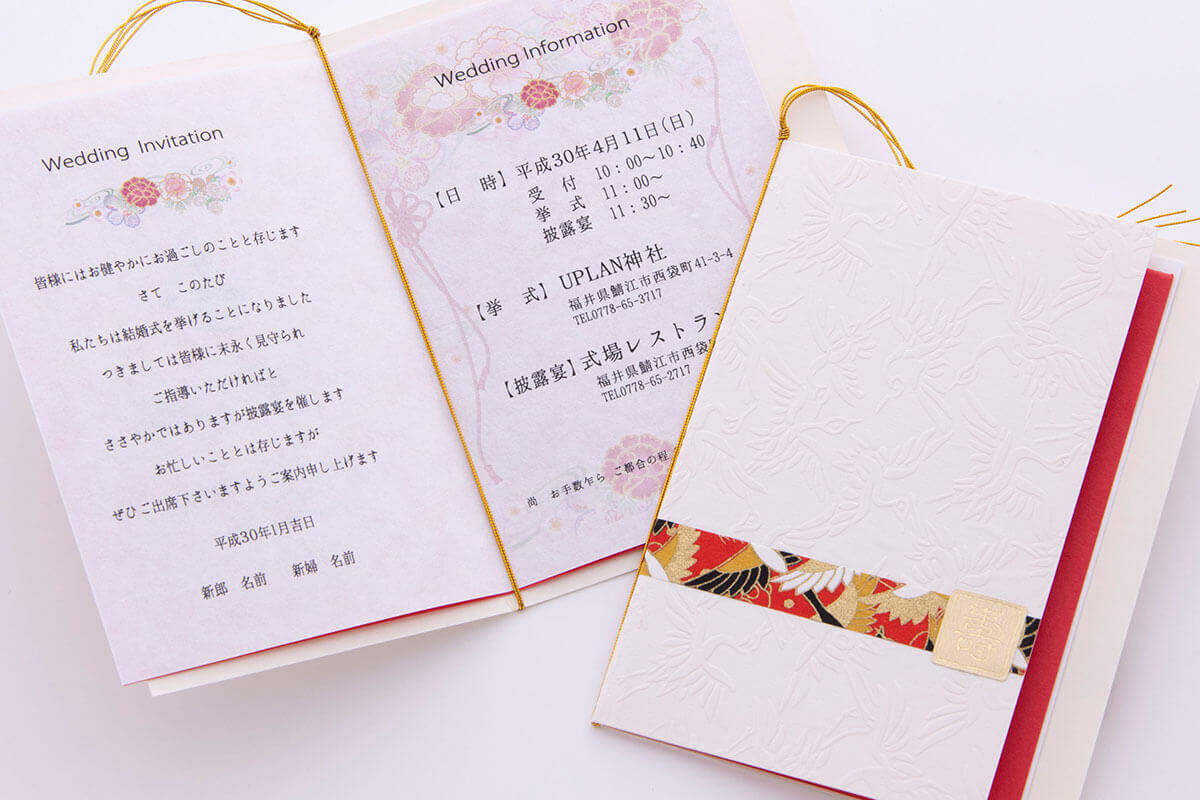 Wedding Invitation
皆様にはお健やかにお過ごしのことと存じます
さて　このたび
私たちは結婚式を挙げることになりました
つきましては皆様に末永く見守られ
ご指導いただければと
ささやかではありますが披露宴を催します
お忙しいこととは存じますが
ぜひご出席下さいますようご案内申し上げます
平成30年1月吉日
新郎　名前　　新婦　名前
Wedding Information
【日　時】平成30年4月11日(日)
受　付　10：00～10：40
挙　式　11：00～
披露宴　11：30～
【挙　式】UPLAN神社
福井県鯖江市西袋町41-3-4
TEL0778-65-3717
【披露宴】式場レストラン
福井県鯖江市西袋
TEL0778-65-2717
尚　お手数乍ら　ご都合の程
壽